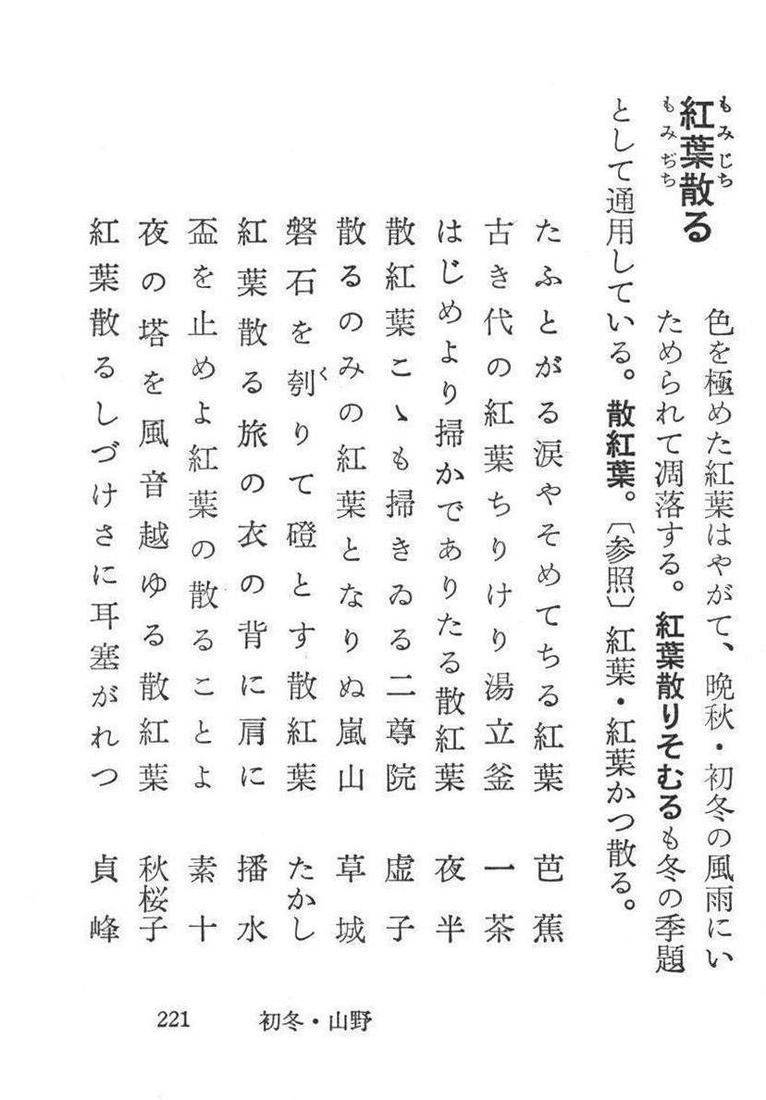 紅葉散る
もみじち
もみぢち
色を極めた紅葉はやがて、晩秋・初冬の風雨にい
ためられて凋落する。紅葉散りそむるも冬の季題
として通用している。散紅葉。〔参照〕紅葉・紅葉かつ散る。
たふとがる涙やそめてちる紅葉　芭蕉
古き代の紅葉ちりけり湯立釜　一茶
はじめより掃かでありたる散紅葉　夜半
散紅葉こゝも掃きゐる二尊院　虚子
散るのみの紅葉となりぬ嵐山　草城
磐石を刳りて磴とす散紅葉　たかし
く
紅葉散る旅の衣の背に肩に　播水
盃を止めよ紅葉の散ることよ　素十
夜の塔を風音越ゆる散紅葉　秋桜子
紅葉散るしづけさに耳塞がれつ　貞峰
221　初冬・山野